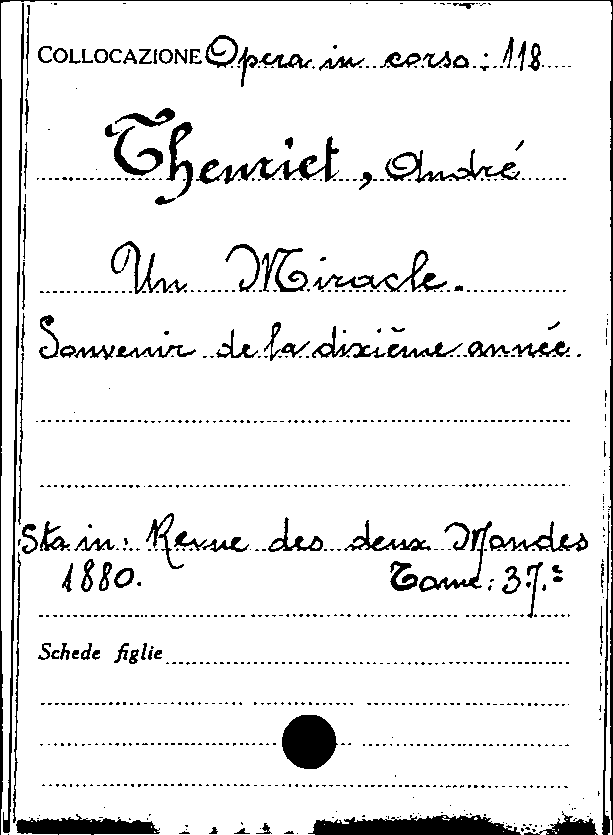 COLLOCAZIONE Opera in corso: 118
Theuriet, André
Un Miracle.
Souvenir de la dixième année.
Sta in: Revue des deux Mondes
1880. Tome: 37.º
Schede figlie